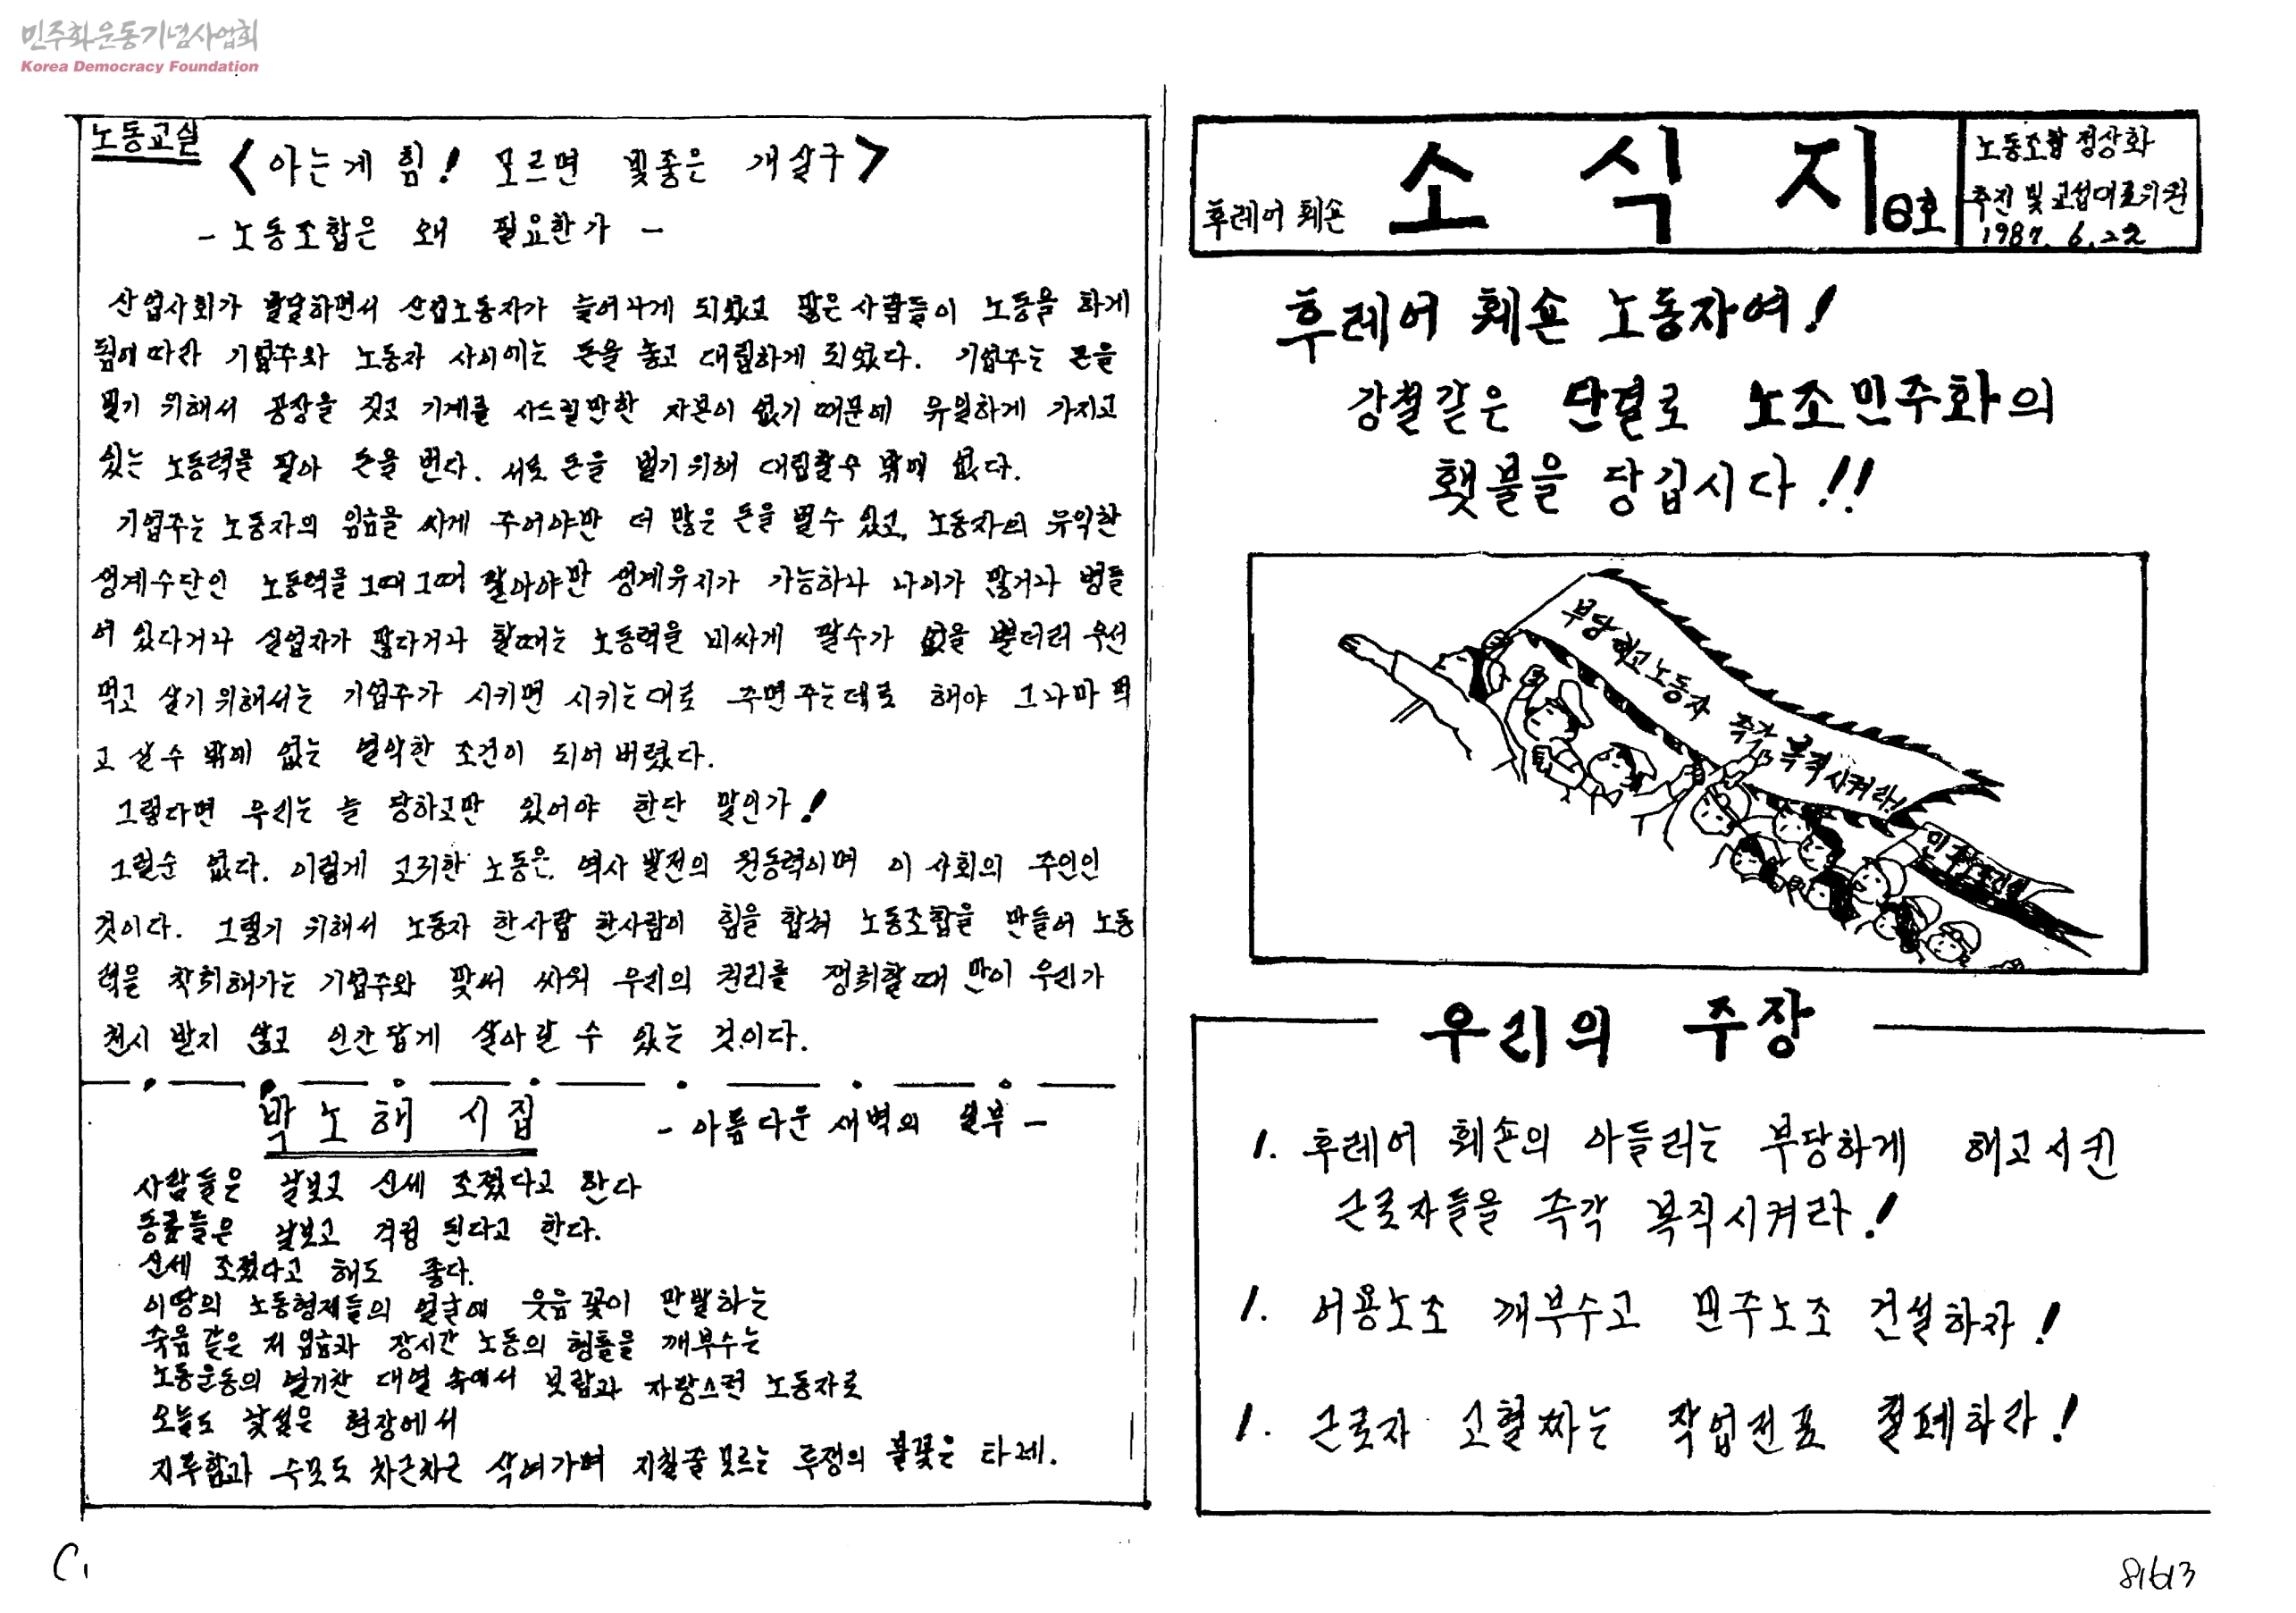 민주화운동기념사업회
Korea Democracy Foundation
노동교실
<아는게 힘! 모르면 빛좋은 개살구>
- 노동조합은 왜 필요한가 -
산업사회가 발달하면서 산업노동자가 늘어나게 되었고 많은 사람들이 노동을 하게
됨에 따라 기업주와 노동자 사이에는 돈을 놓고 대립하게 되었다. 기업주는 돈을
벌기 위해서 공장을 짓고 기계를 사드릴만한 자본이 없기 때문에 유일하게 가지고
있는 노동력을 팔아 돈을 번다. 서로 돈을 벌기 위해 대립할수 밖에 없다.
기업주는 노동자의 임금을 싸게 주어야만 더 많은 돈을 벌수 있고, 노동자의 유일한
생계수단인 노동력을 그때 그때 팔아야만 생계유지가 가능하나 나이가 많거나 병들
어 있다거나 실업자가 많다거나 할때는 노동력을 비싸게 팔수가 없을 뿐더러 우선
먹고 살기 위해서는 기업주가 시키면 시키는대로 주면 주는대로 해야 그나마 먹
고 살수 밖에 없는 열악한 조건이 되어 버렸다.
그렇다면 우리는 늘 당하고만 있어야 한단 말인가!
그럴순 없다. 이렇게 고귀한 노동은 역사 발전의 원동력이며 이 사회의 주인인
것이다. 그렇기 위해서 노동자 한사람 한사람이 힘을 합쳐 노동조합을 만들어 노동
력을 착취해가는 기업주와 맞써 싸워 우리의 권리를 쟁취할때 만이 우리가
천시 받지 않고 인간답게 살아갈 수 있는 것이다.
박노해 시집 - 아름다운 새벽의 일부 -
사람들은 날보고 신세 조졌다고 한다
동료들은 날보고 걱정 된다고 한다.
신세 조졌다고 해도 좋다.
이땅의 노동형제들의 얼굴에 웃음꽃이 만발하는
죽음 같은 저 임금과 장시간 노동의 형틀을 깨부수는
노동운동의 열기찬 대열 속에서 보람과 자랑스런 노동자로
오늘도 낯설은 현장에서
지루함과 수모도 차근차근 삭여가며 지칠줄 모르는 투쟁의 불꽃은 타네.
후레어 훼숀 소식지 6호
노동조합 정상화
추진 및 교섭대표위원
1987. 6. 22
후레어 훼숀 노동자여!
강철같은 단결로 노조민주화의
횃불을 당깁시다!!
부당해고노동자 즉각 복직시켜라!
우리의 주장
1. 후레어 훼숀의 아들러는 부당하게 해고시킨
근로자들을 즉각 복직시켜라!
1. 어용노조 깨부수고 민주노조 건설하자!
1. 근로자 고혈짜는 작업전표 철폐하라!
C1
81613